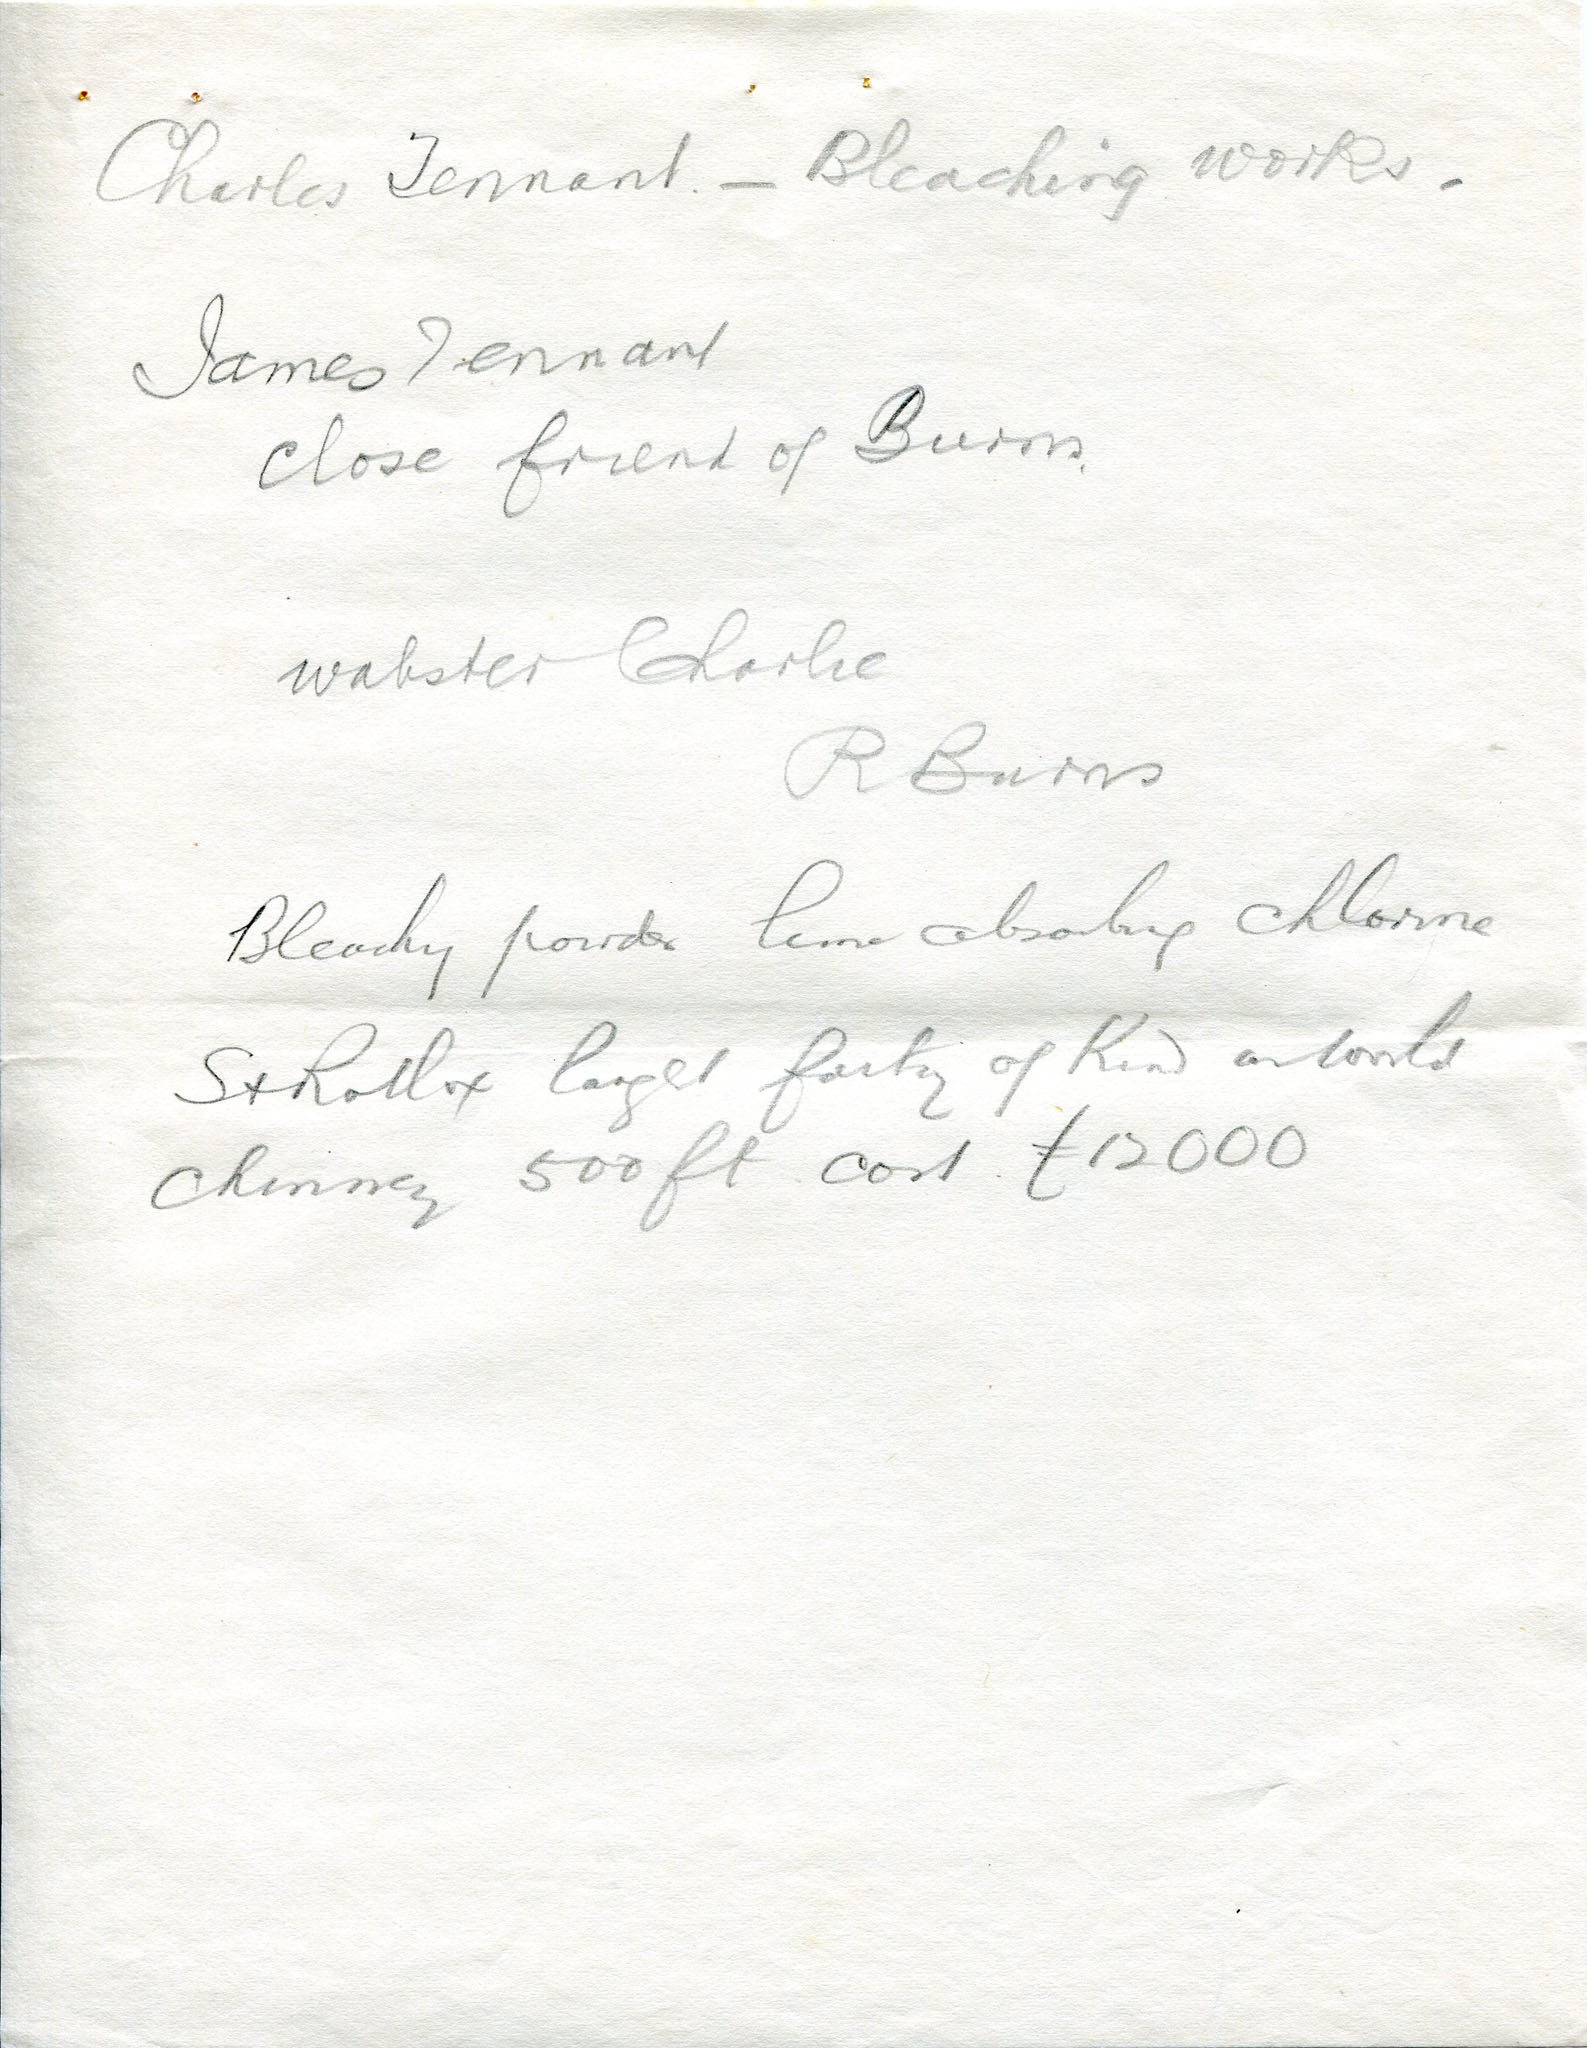 Charles Tennant. — Bleaching works.
James Tennant
close friend of Burns.
wabster Charlie
R Burns
Bleachg powder lime absorbing chlorine
St Rollox largest factory of Kind in World
chimney 500 ft cost £12000